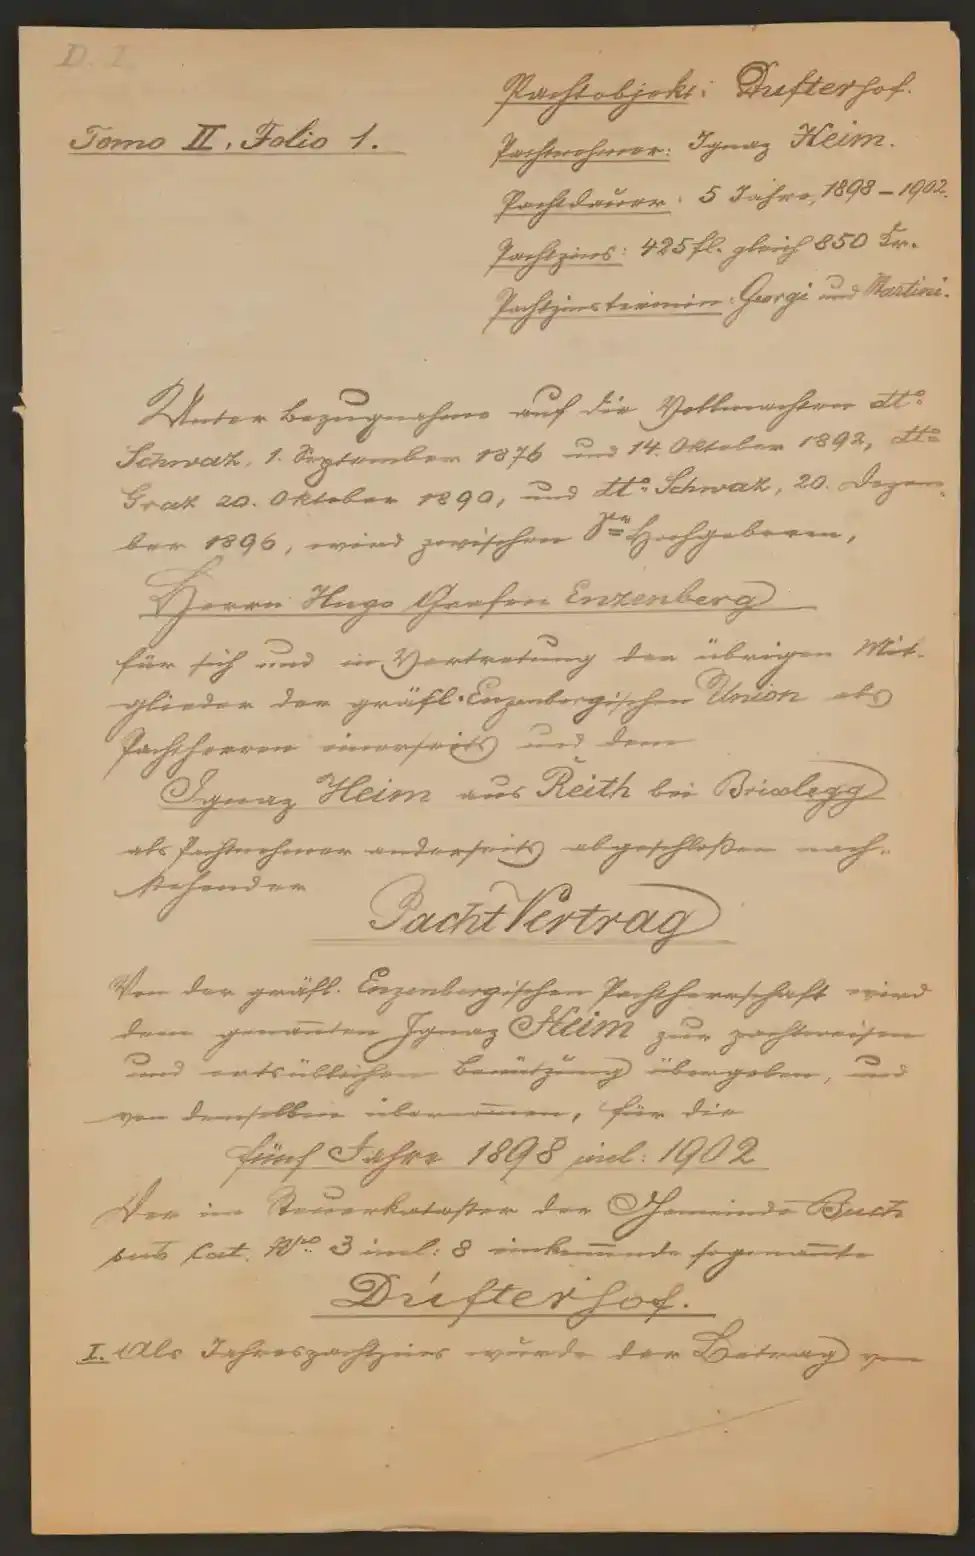 D. I.
Tomo II. Folio 1.
Pachtobjekt: Dufterhof.
Pachtnehmer: Ignaz Heim.
Pachtdauer: 5 Jahre, 1898 – 1902.
Pachtzins: 425 fl. gleich 850 Kr.
Pachtzinstermin: Georgi und Martini.
Unter Bezugnahme auf die Vollmachten dto
Schwaz, 1. September 1876 und 14. Oktober 1892, dto
Graz 20. Oktober 1890, und dto Schwaz, 20. Dezem-
ber 1896, wird zwischen Sr Hochgeboren,
Herrn Hugo Grafen Enzenberg
für sich und in Vertretung der übrigen Mit-
glieder der gräfl. Enzenbergischen Union als
Pachtherren einerseits und dem
Ignaz Heim aus Reith bei Brixlegg
als Pachtnehmer anderseits abgeschloßen nach-
stehender
Pacht Vertrag
Von der gräfl. Enzenbergischen Pachtherrschaft wird
dem genannten Ignaz Heim zur pachtweisen
und ortsüblichen Benützung übergeben, und
von demselben übernommen, für die
fünf Jahre 1898 incl: 1902
Der im Steuerkataster der Gemeinde Buch
sub Cat. Nro 3 incl: 8 einkommende sogenannte
Dufterhof.
I. Als Jahrespachtzins wurde der Betrag von